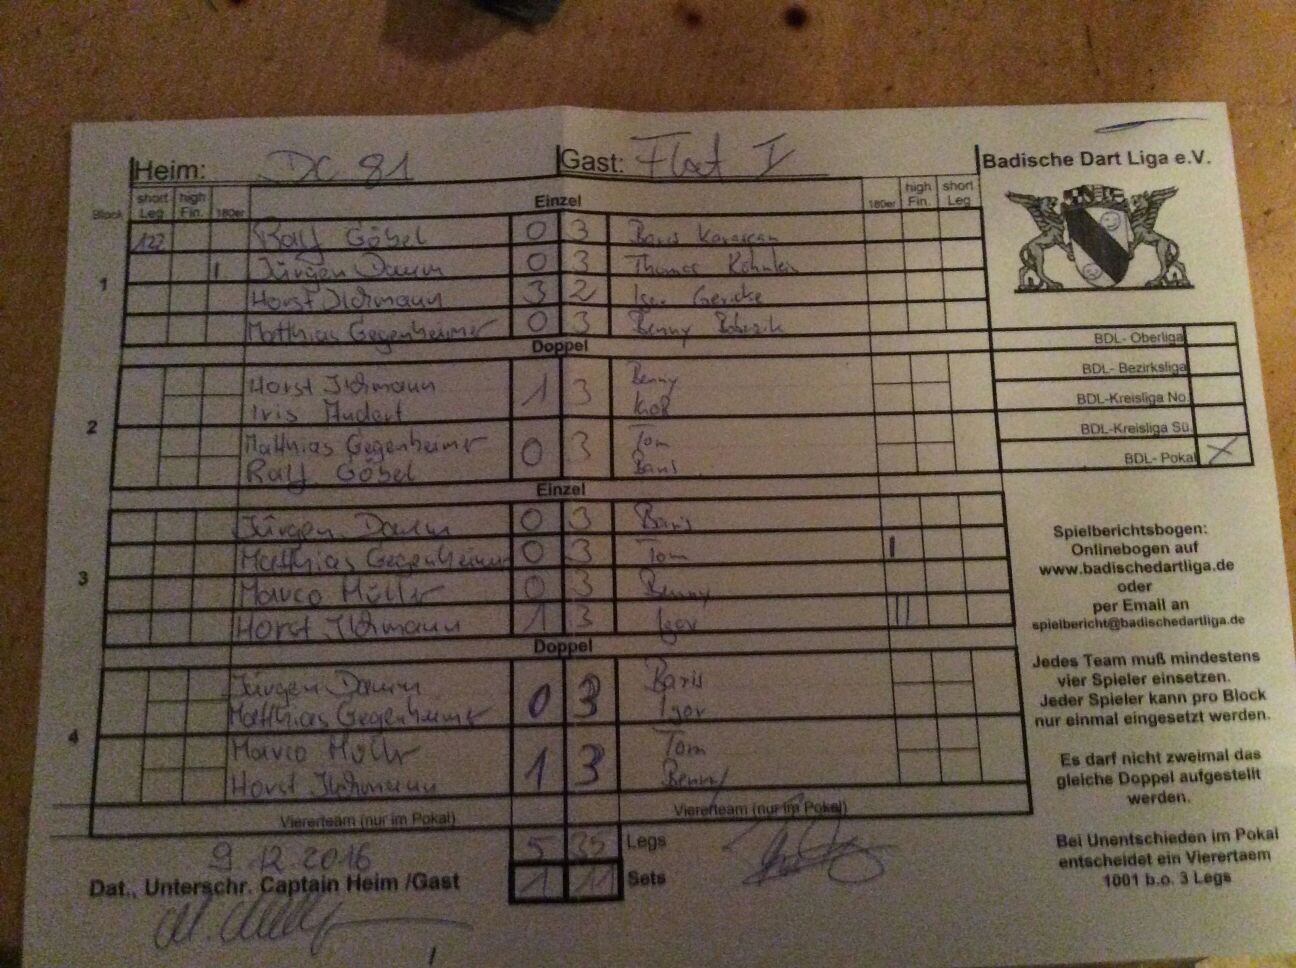 Heim: DC 81 Gast: Flat I Badische Dart Liga e.V.
Block short Leg high Fin. 180er Einzel 180er high Fin. short Leg
1
122 Ralf Göbel 0 3 Baris
I Jürgen Damm 0 3 Thomas
Horst Ihrmann 3 2 Igor Gericke
Matthias Gegenheimer 0 3 Benny
Doppel
2
Horst Ihrmann 1 3 Benny
Iris Audert
Matthias Gegenheimer 0 3 Tom
Ralf Göbel Baris
Einzel
3
Jürgen Damm 0 3 Baris
Matthias Gegenheimer 0 3 Tom I
Marco Müller 0 3 Benny
Horst Ihrmann 1 3 Igor III
Doppel
4
Jürgen Damm 0 3 Baris
Matthias Gegenheimer Igor
Marco Müller 1 3 Tom
Horst Ihrmann Benny
Viererteam (nur im Pokal) Viererteam (nur im Pokal)
5 35 Legs
9.12.2016
Dat., Unterschr. Captain Heim /Gast 1 11 Sets
BDL- Oberliga
BDL- Bezirksliga
BDL-Kreisliga No.
BDL-Kreisliga Sü.
BDL- Pokal X
Spielberichtsbogen:
Onlinebogen auf
www.badischedartliga.de
oder
per Email an
spielbericht@badischedartliga.de
Jedes Team muß mindestens
vier Spieler einsetzen.
Jeder Spieler kann pro Block
nur einmal eingesetzt werden.
Es darf nicht zweimal das
gleiche Doppel aufgestellt
werden.
Bei Unentschieden im Pokal
entscheidet ein Vierertaem
1001 b.o. 3 Legs